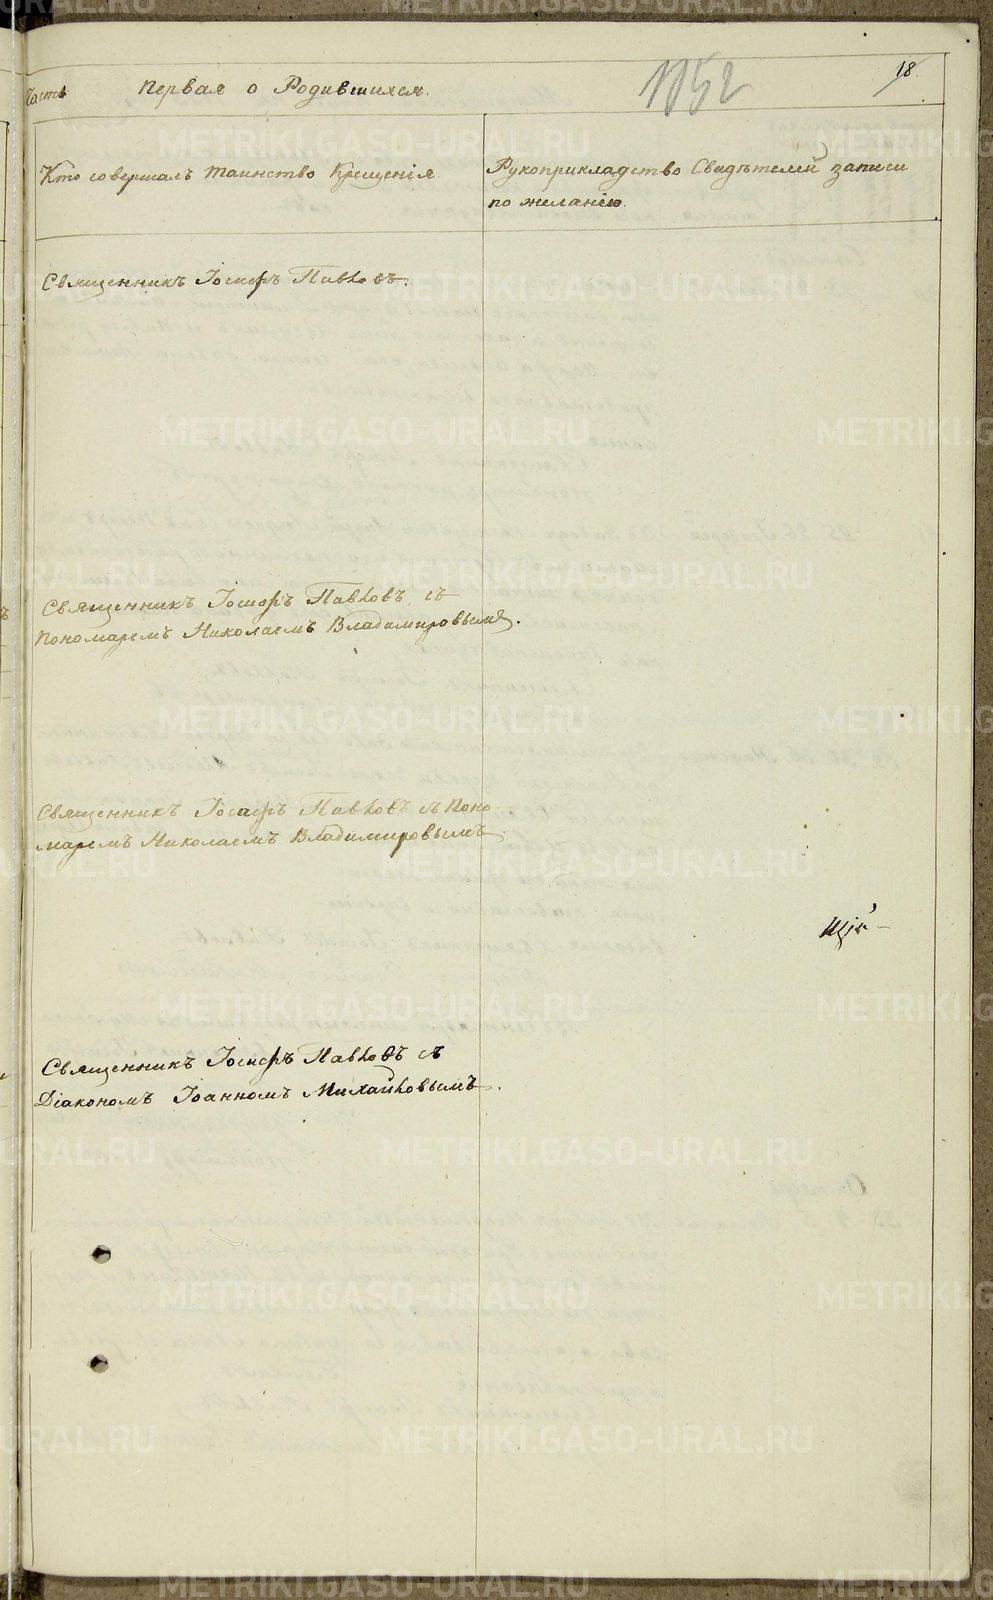 18.
1152
Часть Первая о Родившихся.
Кто совершалъ таинство Крещенія
Рукоприкладство Свидѣтелей записи
по желанію.
Священникъ Іосифъ Павловъ.
Священникъ Іосифъ Павловъ съ
Пономаремъ Николаемъ Владимировымъ.
Священникъ Іосифъ Павловъ съ Поно
маремъ Николаемъ Владимировымъ
Священникъ Іосифъ Павловъ съ
Діакономъ Іоанномъ Михайловымъ.
METRIKI.GASO-URAL.RU